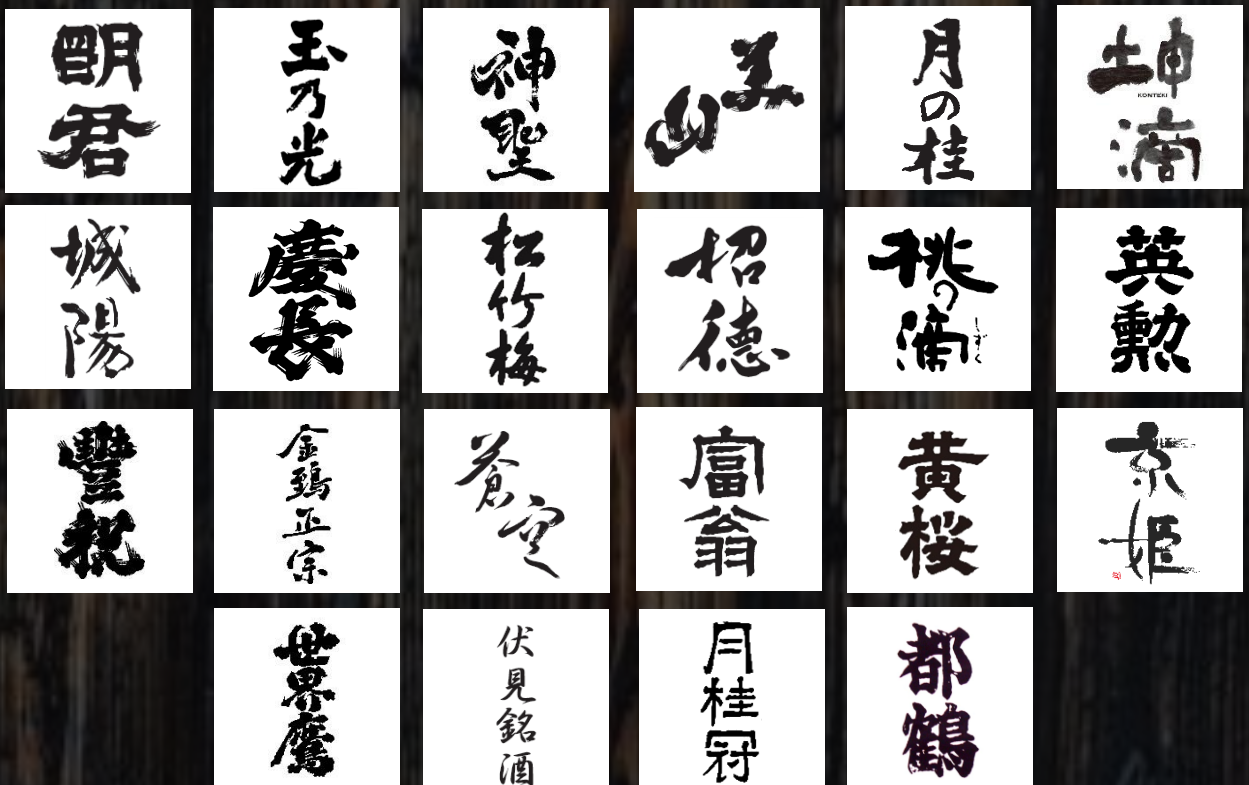 明君
玉乃光
神聖
美山
月の桂
坤滴
KONTEKI
城陽
慶長
松竹梅
招德
桃の滴
しずく
英勲
豊祝
金鵄正宗
蒼空
富翁
黄桜
京姫
世界鷹
伏見銘酒
月桂冠
都鶴